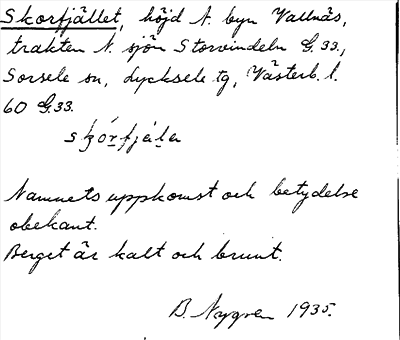 Skorfjället, höjd N. byn Vallnäs,
trakten N. sjön Storvindeln G. 33.,
Sorsele sn, Lycksele tg, Västerb. l.
60 G. 33.
skórfjäla
Namnets uppkomst och betydelse
obekant.
Berget är kalt och brunt.
B. Nygren 1935.